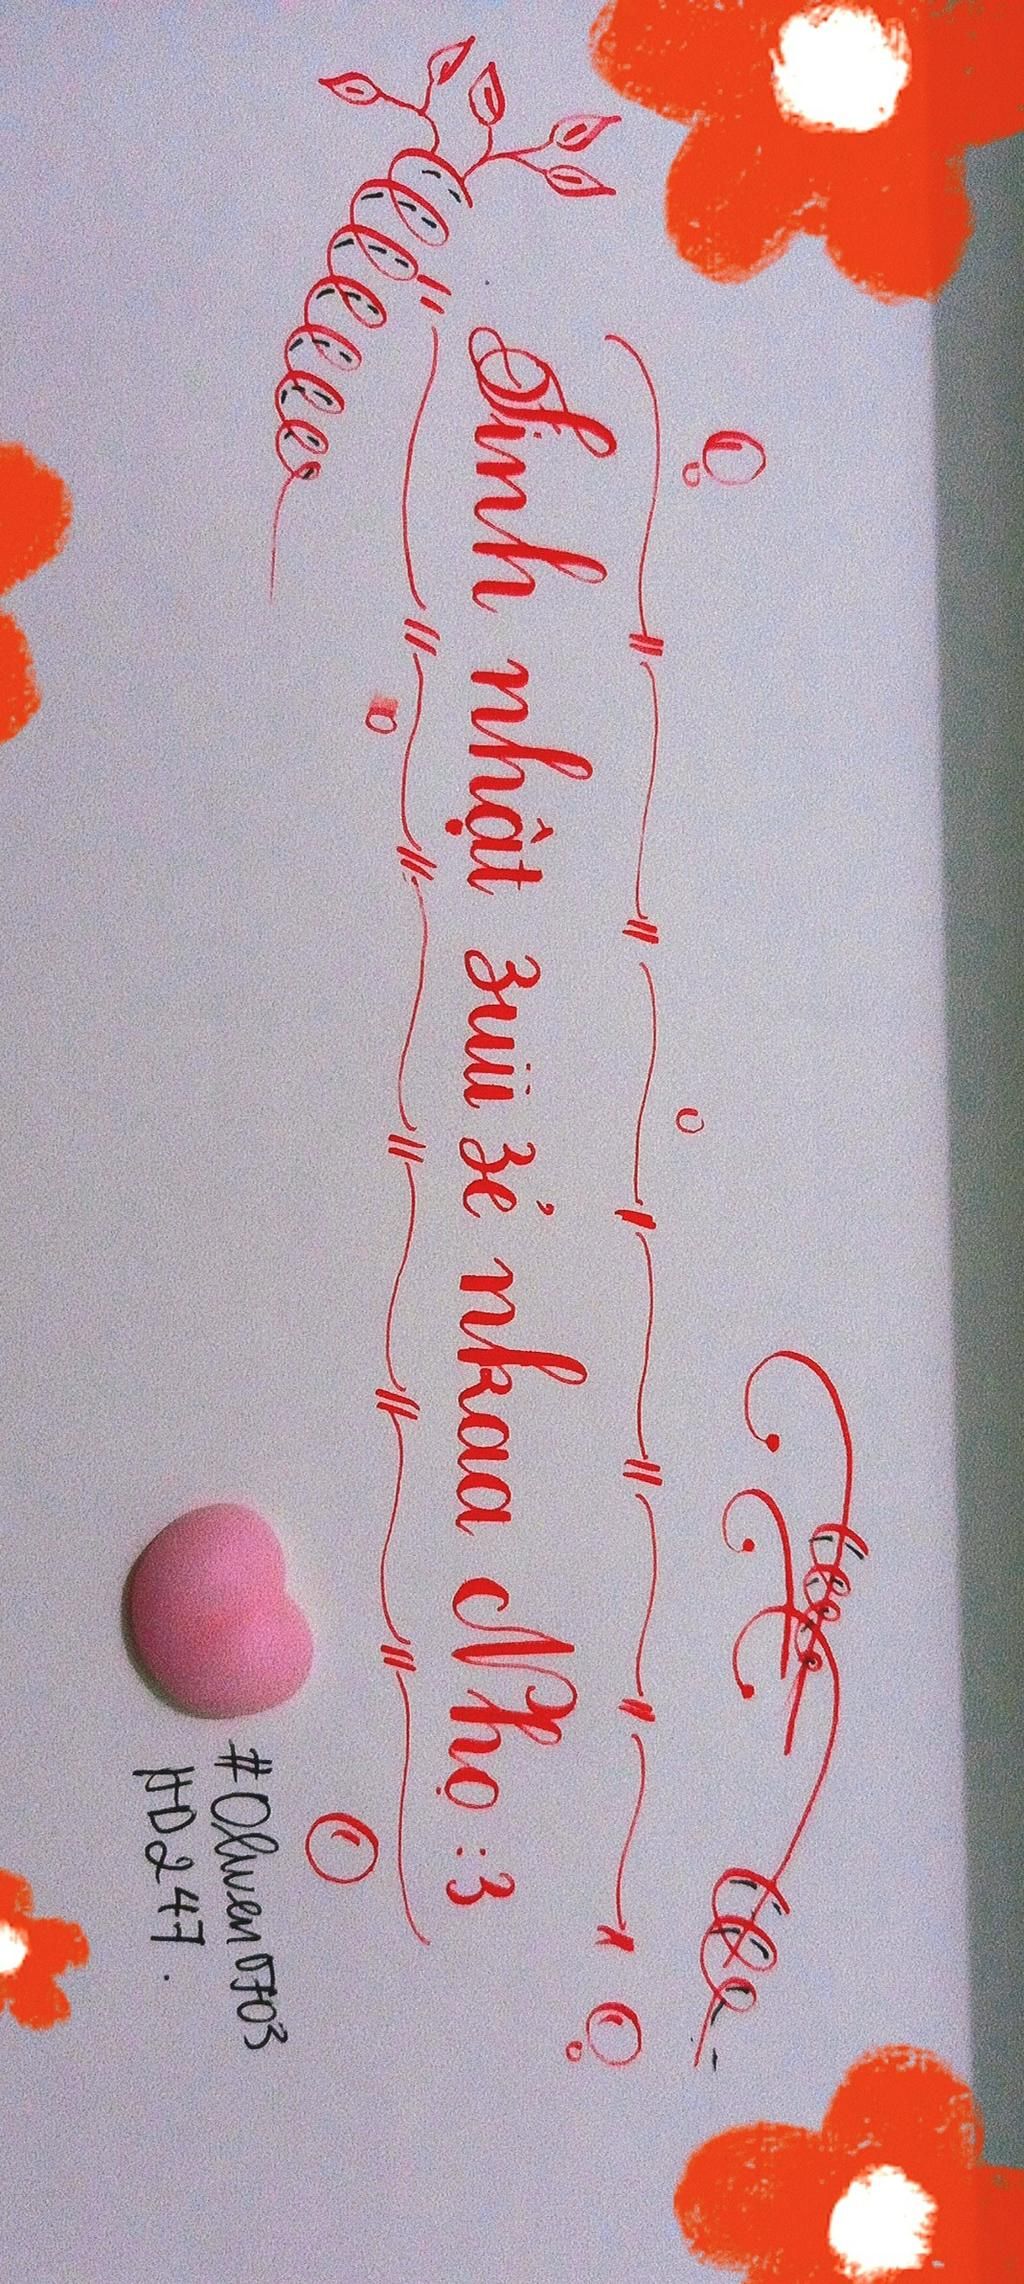 Sinh nhật zuii zẻ nkaa Nhọ :3
#Olwen0703
HD247.